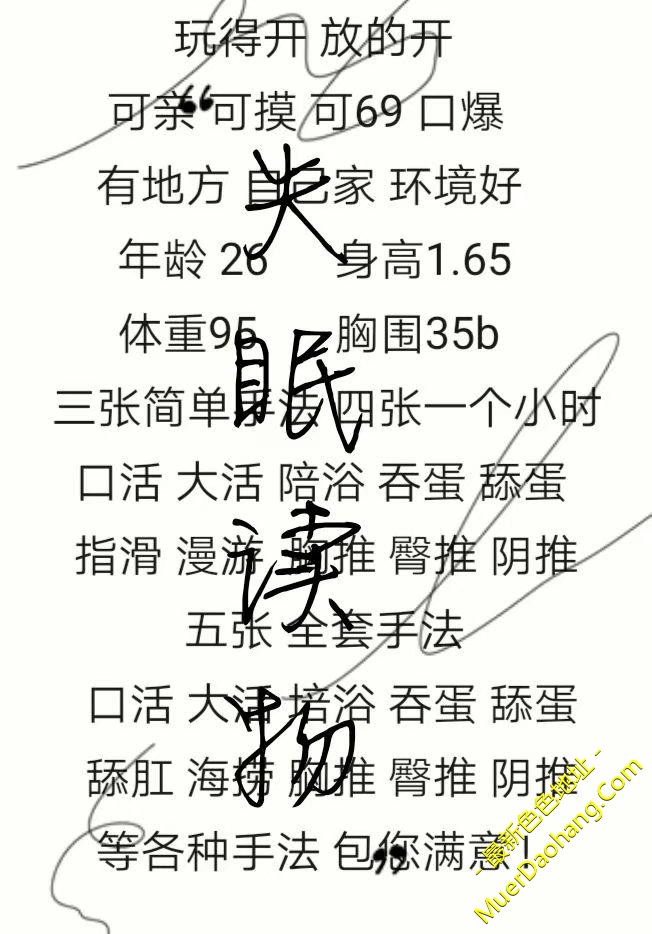 玩得开 放的开
可亲 可摸 可69 口爆
有地方 自己家 环境好
年龄 26 身高1.65
体重95 胸围35b
三张简单手法 四张一个小时
口活 大活 陪浴 吞蛋 舔蛋
指滑 漫游 胸推 臀推 阴推
五张 全套手法
口活 大活 培浴 吞蛋 舔蛋
舔肛 海捞 胸推 臀推 阴推
等各种手法 包您满意!
“失眠读物”
- 最新色色地址 -
MuerDaohang.Com